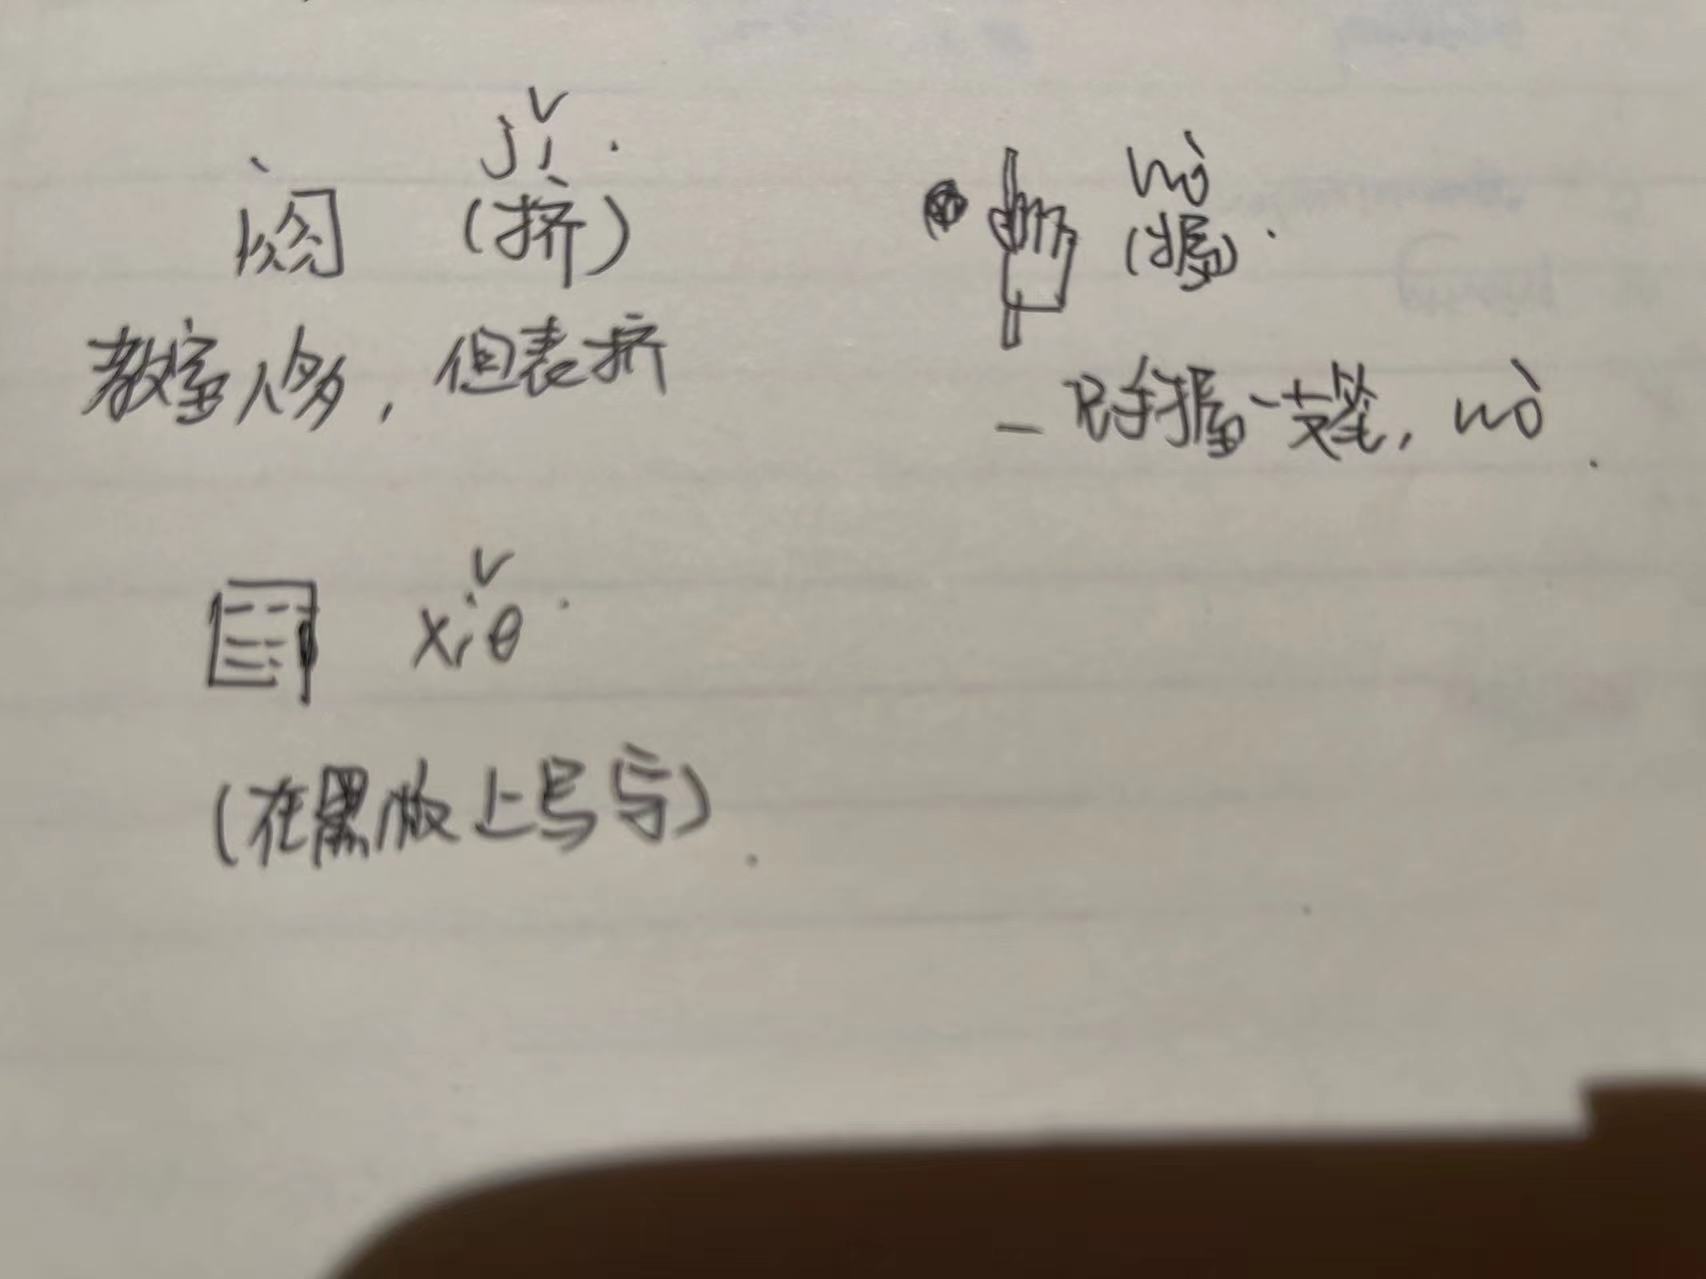 jǐ
(挤)
教室人多，但表挤
wò
(握)
一只手握一支笔，wò
xiě
(在黑版上写字)